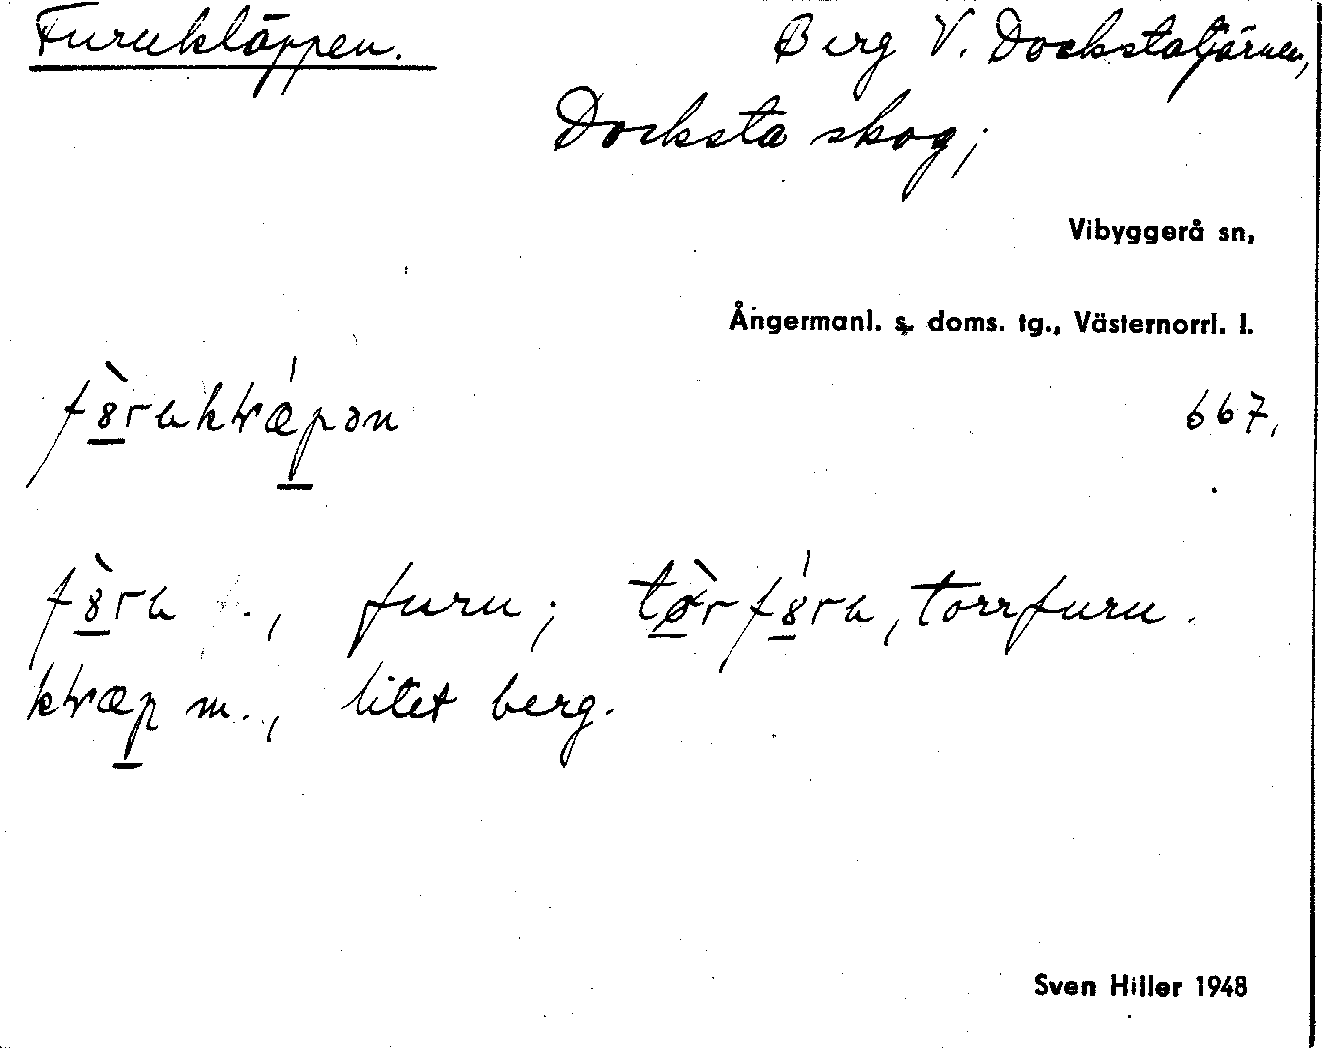 Furukläppen. Berg V. Dockstatjärnen,
Docksta skog;
Vibyggerå sn,
Ångermanl. s. doms. tg., Västernorrl. l.
fò̱rukɬæ̀p̱ən 667,
fȣ̱̀ru f., furu; tø̱̀rfȣ̱́ru, torrfuru.
kɬæp̱ m., litet berg.
Sven Hiller 1948